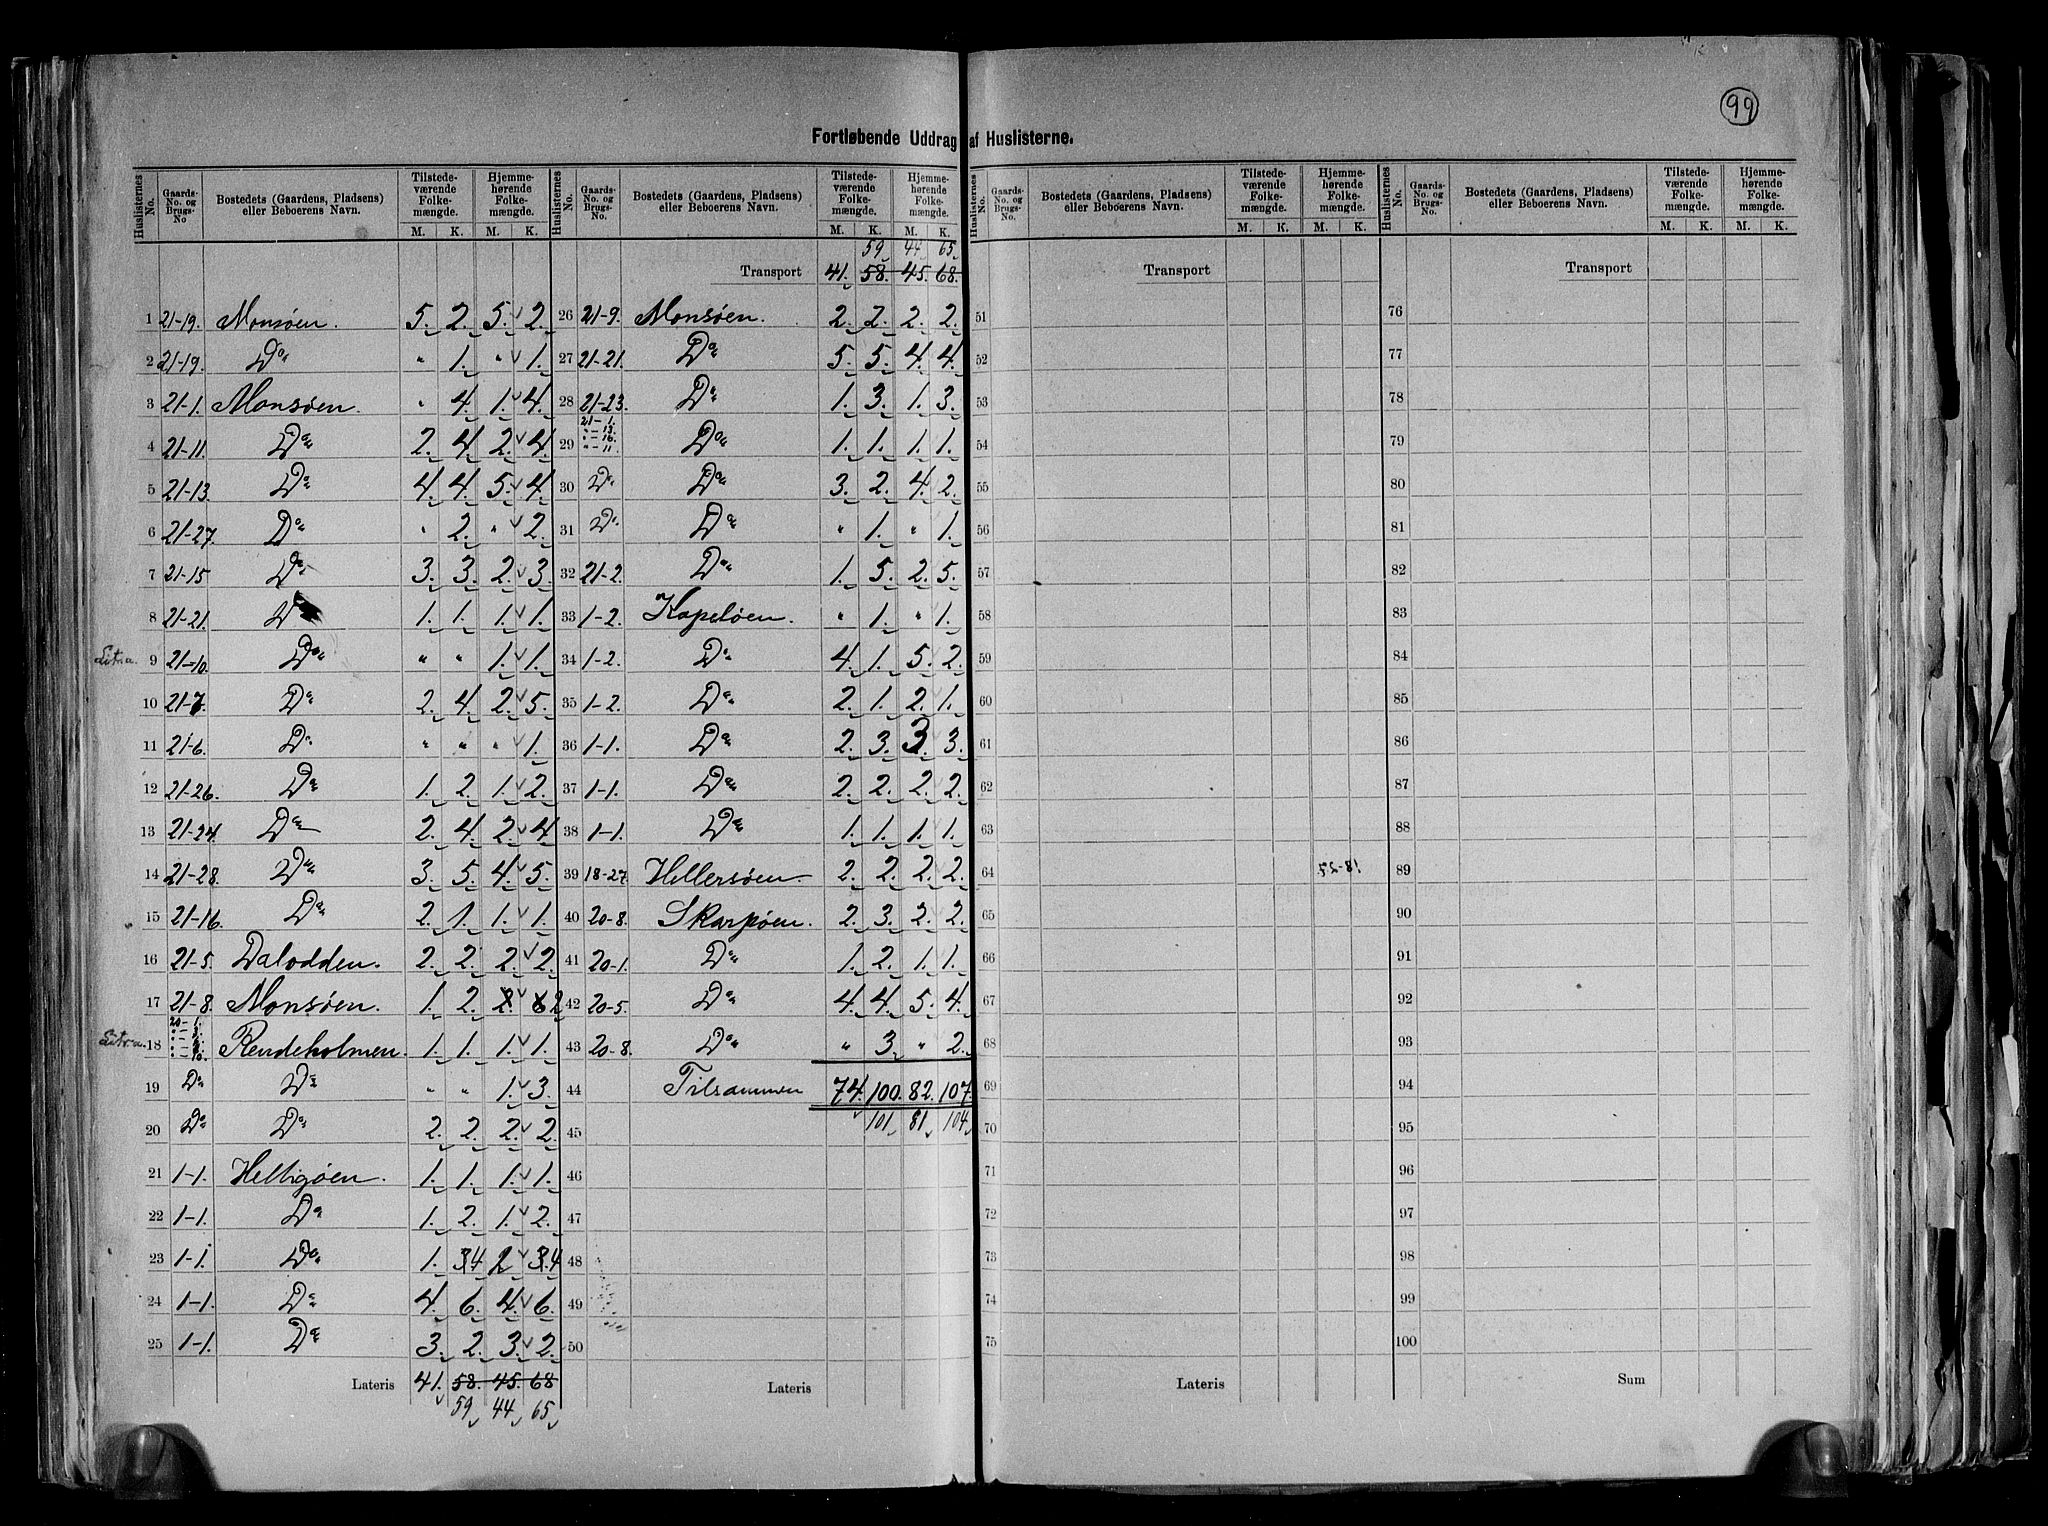 99
Fortløbende Uddrag af Huslisterne.
Huslisternes No. | Gaards-No. og Brugs-No | Bostedets (Gaardens, Pladsens) eller Beboerens Navn. | Tilstedeværende Folkemængde. M. K. | Hjemmehørende Folkemængde. M. K.
1 21-19. Monsøen. 5. 2. 5. 2.
2 21-19. Do " 1. " 1.
3 21-1. Monsøen. " 4. 1. 4.
4 21-11. Do 2. 4. 2. 4.
5 21-13. Do 4. 4. 5. 4.
6 21-27. Do " 2. " 2.
7 21-15 Do 3. 3. 2. 3.
8 21-21. Do 1. 1. 1. 1.
9 21-10. Do " " 1. 1.
10 21-7. Do 2. 4. 2. 5.
11 21-6. Do " " " 1.
12 21-26. Do 1. 2. 1. 2.
13 21-24. Do 2. 4. 2. 4.
14 21-28. Do 3. 5. 4. 5.
15 21-16. Do 2. 1. 1. 1.
16 21-5. Dalodden. 2. 2. 2. 2.
17 21-8. Monsøen. 1. 2. 2 2
18 20-1. Rendeholmen. 1. 1. 1. 1.
19 Do Do " " 1. 3.
20 Do Do 2. 2. 2. 2.
21 1-1. Helligøen. 1. 1. 1. 1.
22 1-1. Do 1. 2. 1. 2.
23 1-1. Do 1. 34 2 3.4
24 1-1. Do 4. 6. 4. 6.
25 1-1. Do 3. 2. 3. 2.
Lateris 41. 58. 45. 68
59 44 65
Huslisternes No. | Gaards-No. og Brugs-No. | Bostedets (Gaardens, Pladsens) eller Beboerens Navn. | Tilstedeværende Folkemængde. M. K. | Hjemmehørende Folkemængde. M. K.
59 44 65
Transport 41. 58. 45. 68.
26 21-9. Monsøen. 2. 2. 2. 2.
27 21-21. Do 5. 5. 4. 4.
28 21-23. Do 1. 3. 1. 3.
29 21-1. "-13. "-16. "-11. Do 1. 1. 1. 1.
30 Do Do 3. 2. 4. 2.
31 Do Do " 1. " 1.
32 21-2. Do 1. 5. 2. 5.
33 1-2. Kapeløen. " 1. " 1.
34 1-2. Do 4. 1. 5. 2.
35 1-2. Do 2. 1. 2. 1.
36 1-1. Do 2. 3. 3. 3.
37 1-1. Do 2. 2. 2. 2.
38 1-1. Do 1. 1. 1. 1.
39 18-27. Hellersøen. 2. 2. 2. 2.
40 20-8. Skarpøen. 2. 3. 2. 2.
41 20-1. Do 1. 2. 1. 1.
42 20-5. Do 4. 4. 5. 4.
43 20-8. Do " 3. " 2.
44 Tilsammen 74. 100. 82. 107.
45 101 81 104
46
47
48
49
50
Lateris
Huslisternes No. | Gaards-No. og Brugs-No. | Bostedets (Gaardens, Pladsens) eller Beboerens Navn. | Tilstedeværende Folkemængde. M. K. | Hjemmehørende Folkemængde. M. K.
Transport
51
52
53
54
55
56
57
58
59
60
61
62
63
64
65
66
67
68
69
70
71
72
73
74
75
Lateris
Huslisternes No. | Gaards-No. og Brugs-No. | Bostedets (Gaardens, Pladsens) eller Beboerens Navn. | Tilstedeværende Folkemængde. M. K. | Hjemmehørende Folkemængde. M. K.
Transport
76
77
78
79
80
81
82
83
84
85
86
87
88
89
90
91
92
93
94
95
96
97
98
99
100
Sum